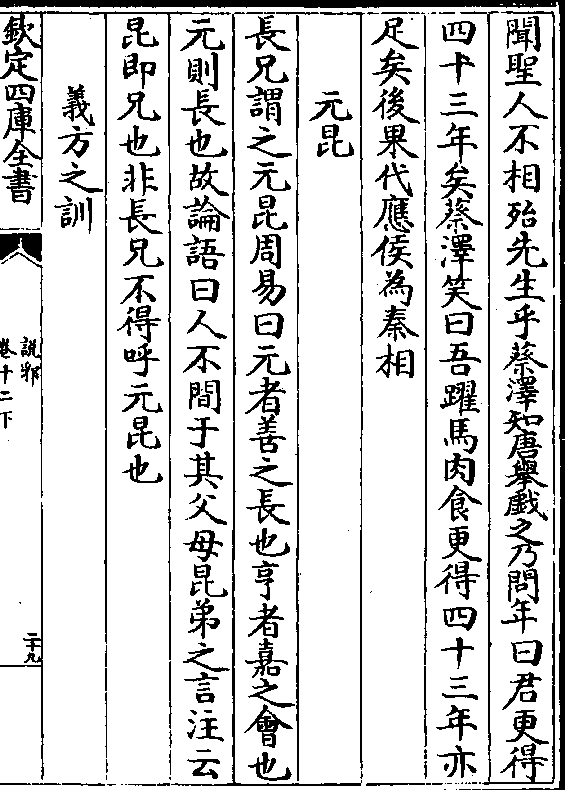 聞聖人不相殆先生乎蔡澤知唐舉戲之乃問年曰君更得
四十三年矣蔡澤笑曰吾躍馬肉食更得四十三年亦
足矣後果代應侯為秦相
元昆
長兄謂之元昆周易曰元者善之長也亨者嘉之會也
元則長也故論語曰人不間于其父母昆弟之言注云
昆即兄也非長兄不得呼元昆也
義方之訓
欽定四庫全書
說郛
卷十二下
二十九